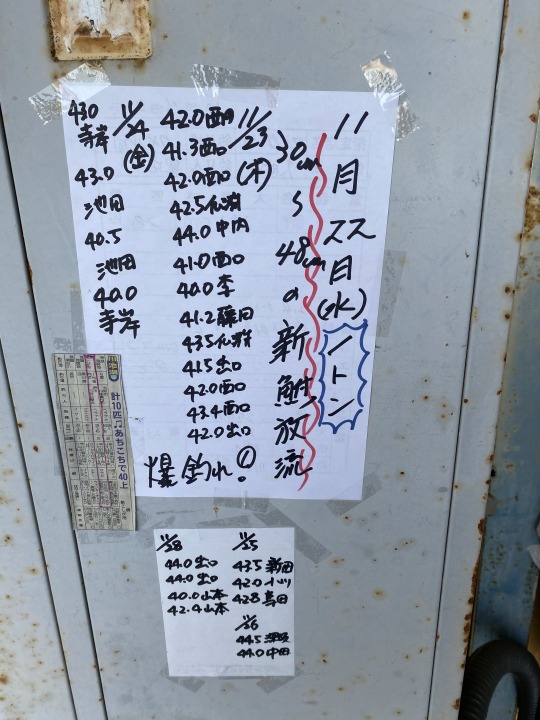 11月22日(水)
1トン
30cm〜48cmの新鮒放流
11/23
(木)
42.0西口
41.3西口
42.0西口
42.5仏淵
44.0中内
41.0西口
40.0李
41.2藤田
43.5仏淵
41.5出口
42.0西口
43.4西口
42.0出口
11/24
(金)
43.0
寺岸
43.0
池田
40.5
池田
40.0
寺岸
爆釣れ!
計10匹♫あちこちで40上
11/25
43.5新田
42.0小川
42.8島田
11/26
44.5瀬頭
44.0中田
11/28
44.0出口
44.0出口
40.0山本
42.4山本